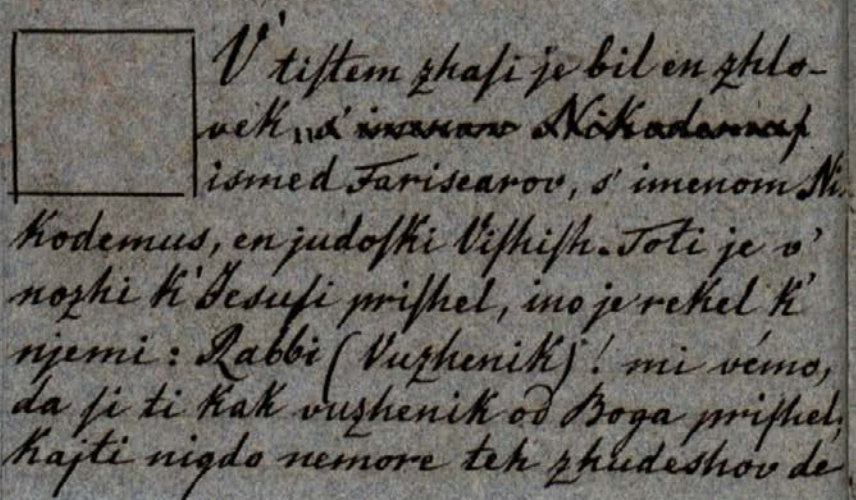 V' tiſtem zhaſi je bil en zhlo-
vek,, s' imenam Nikodemuſ
ismed Farisearov, s' imenom Ni-
kodemus, en judoſki Viſhiſh. Toti je v'
nozhi k' Jesuſi priſhel, ino je rekel k'
njemi: Rabbi (Vuzhenik)! mi vémo,
da ſi ti kak vuzhenik od Boga priſhel;
kajti nigdo nemore teh zhudeshov de-